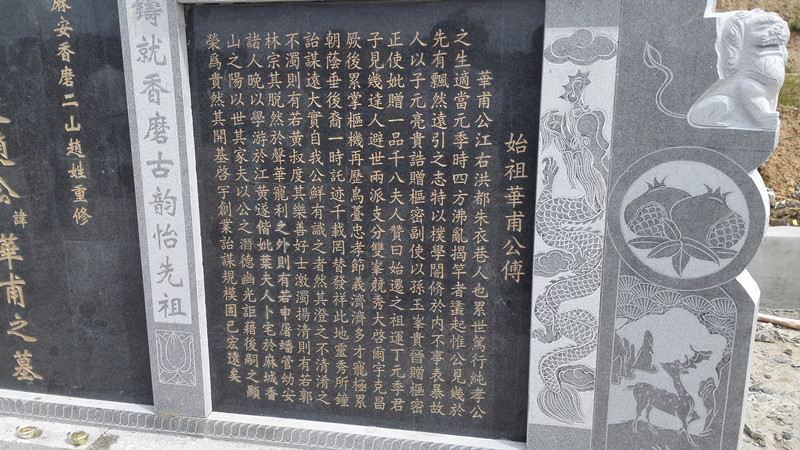 始祖華甫公傳
華甫公江右洪都朱衣巷人也累世篤行純孝公
之生適當元季時四方沸亂揭竿者蠭起惟公見幾於
先有飄然遠引之志特以樸學闇修於内不事表暴故
人以子元亮貴誥贈樞密副使以孫玉峯貴晉贈樞密
正使妣贈一品千八夫人贊曰始遷之祖運丁元季君
子見幾達人避世兩派支分雙峯競秀大啓爾宇克昌
厥後累掌樞機再歷烏臺忠孝節義濟濟多才龍極累
朝蔭垂後裔一時託迹千載罔替發祥此地靈秀所鐘
詒謀遠大實自我公鮮有識之者然其澄之不清淆之
不濁則有若黃叔度其樂善好士激濁揚清則有若郭
林宗其脱然於聲華寵利之外則有若申屠蟠管幼安
諸人晚以學游於江黃遂偕妣葉夫人卜宅於麻城香
山之陽以世其家夫以公之潛德幽光詎藉後嗣之顯
榮爲貴然其開基啓宇創業詒謀規模固已宏遠矣
鑄就香磨古韵怡先祖
麻安香磨二山趙姓重修
趙公諱華甫之墓